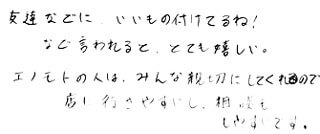 友達などに、いいもの付けてるね!
など言われると、とても嬉しい。
エノモトの人は、みんな親切にしてくれるので
店に行きやすいし、相談も
しやすいです。